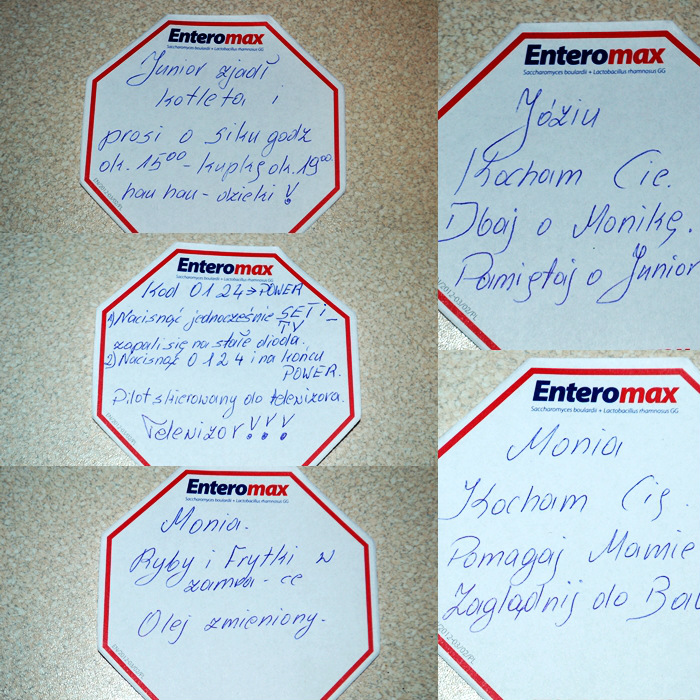 Enteromax
Saccharomyces boulardii + Lactobacillus rhamnosus GG
Junior zjadł
kotleta i
prosi o siku godz
ok. 15⁰⁰ - kupkę ok. 19⁰⁰.
hau hau - dzięki !
Enteromax
Saccharomyces boulardii + Lactobacillus rhamnosus GG
Kod 0124 → POWER
1) Nacisnąć jednocześnie SET i -
TV
zapali się na stałe dioda.
2) Nacisnąć 0124 i na końcu
POWER.
Pilot skierowany do telewizora.
Telewizor !!!
Enteromax
Saccharomyces boulardii + Lactobacillus rhamnosus GG
Monia.
Ryby i Frytki w
zamra - ce
Olej zmieniony.
Enteromax
Saccharomyces boulardii + Lactobacillus rhamnosus GG
Józiu
Kocham Cię.
Dbaj o Monikę.
Pamiętaj o Junior
Enteromax
Saccharomyces boulardii + Lactobacillus rhamnosus GG
Monia
Kocham Cię.
Pomagaj Mamie
Zaglądnij do Bab